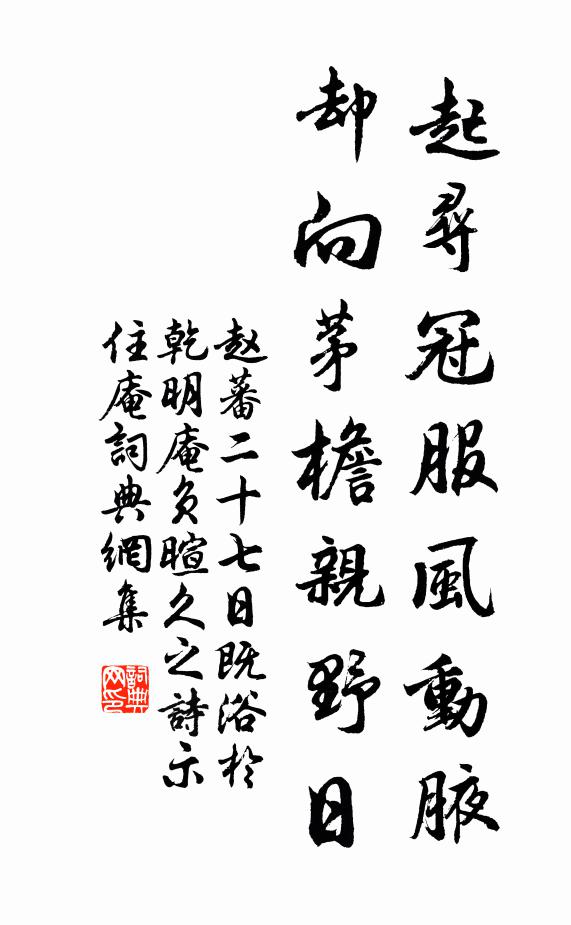 起尋冠服風動腋
却向茅檐親野日
赵蕃二十七日既浴於
乾明庵负暄久之詩示
住庵詞典網集
詞典网印